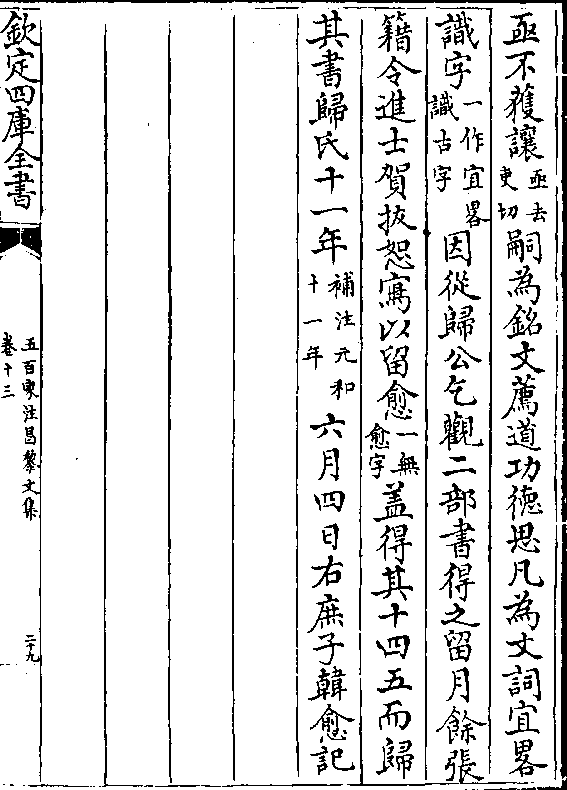 亟不獲讓亟去吏切嗣為銘文薦道功徳思凡為文詞宜畧
識字一作宜畧識古字因從歸公乞觀二部書得之留月餘張
籍令進士賀拔恕寫以留愈一無愈字盖得其十四五而歸
其書歸氏十一年補注元和十一年六月四日右庶子韓愈記
欽定四庫全書
五百家注昌黎文集
卷十三
二十九